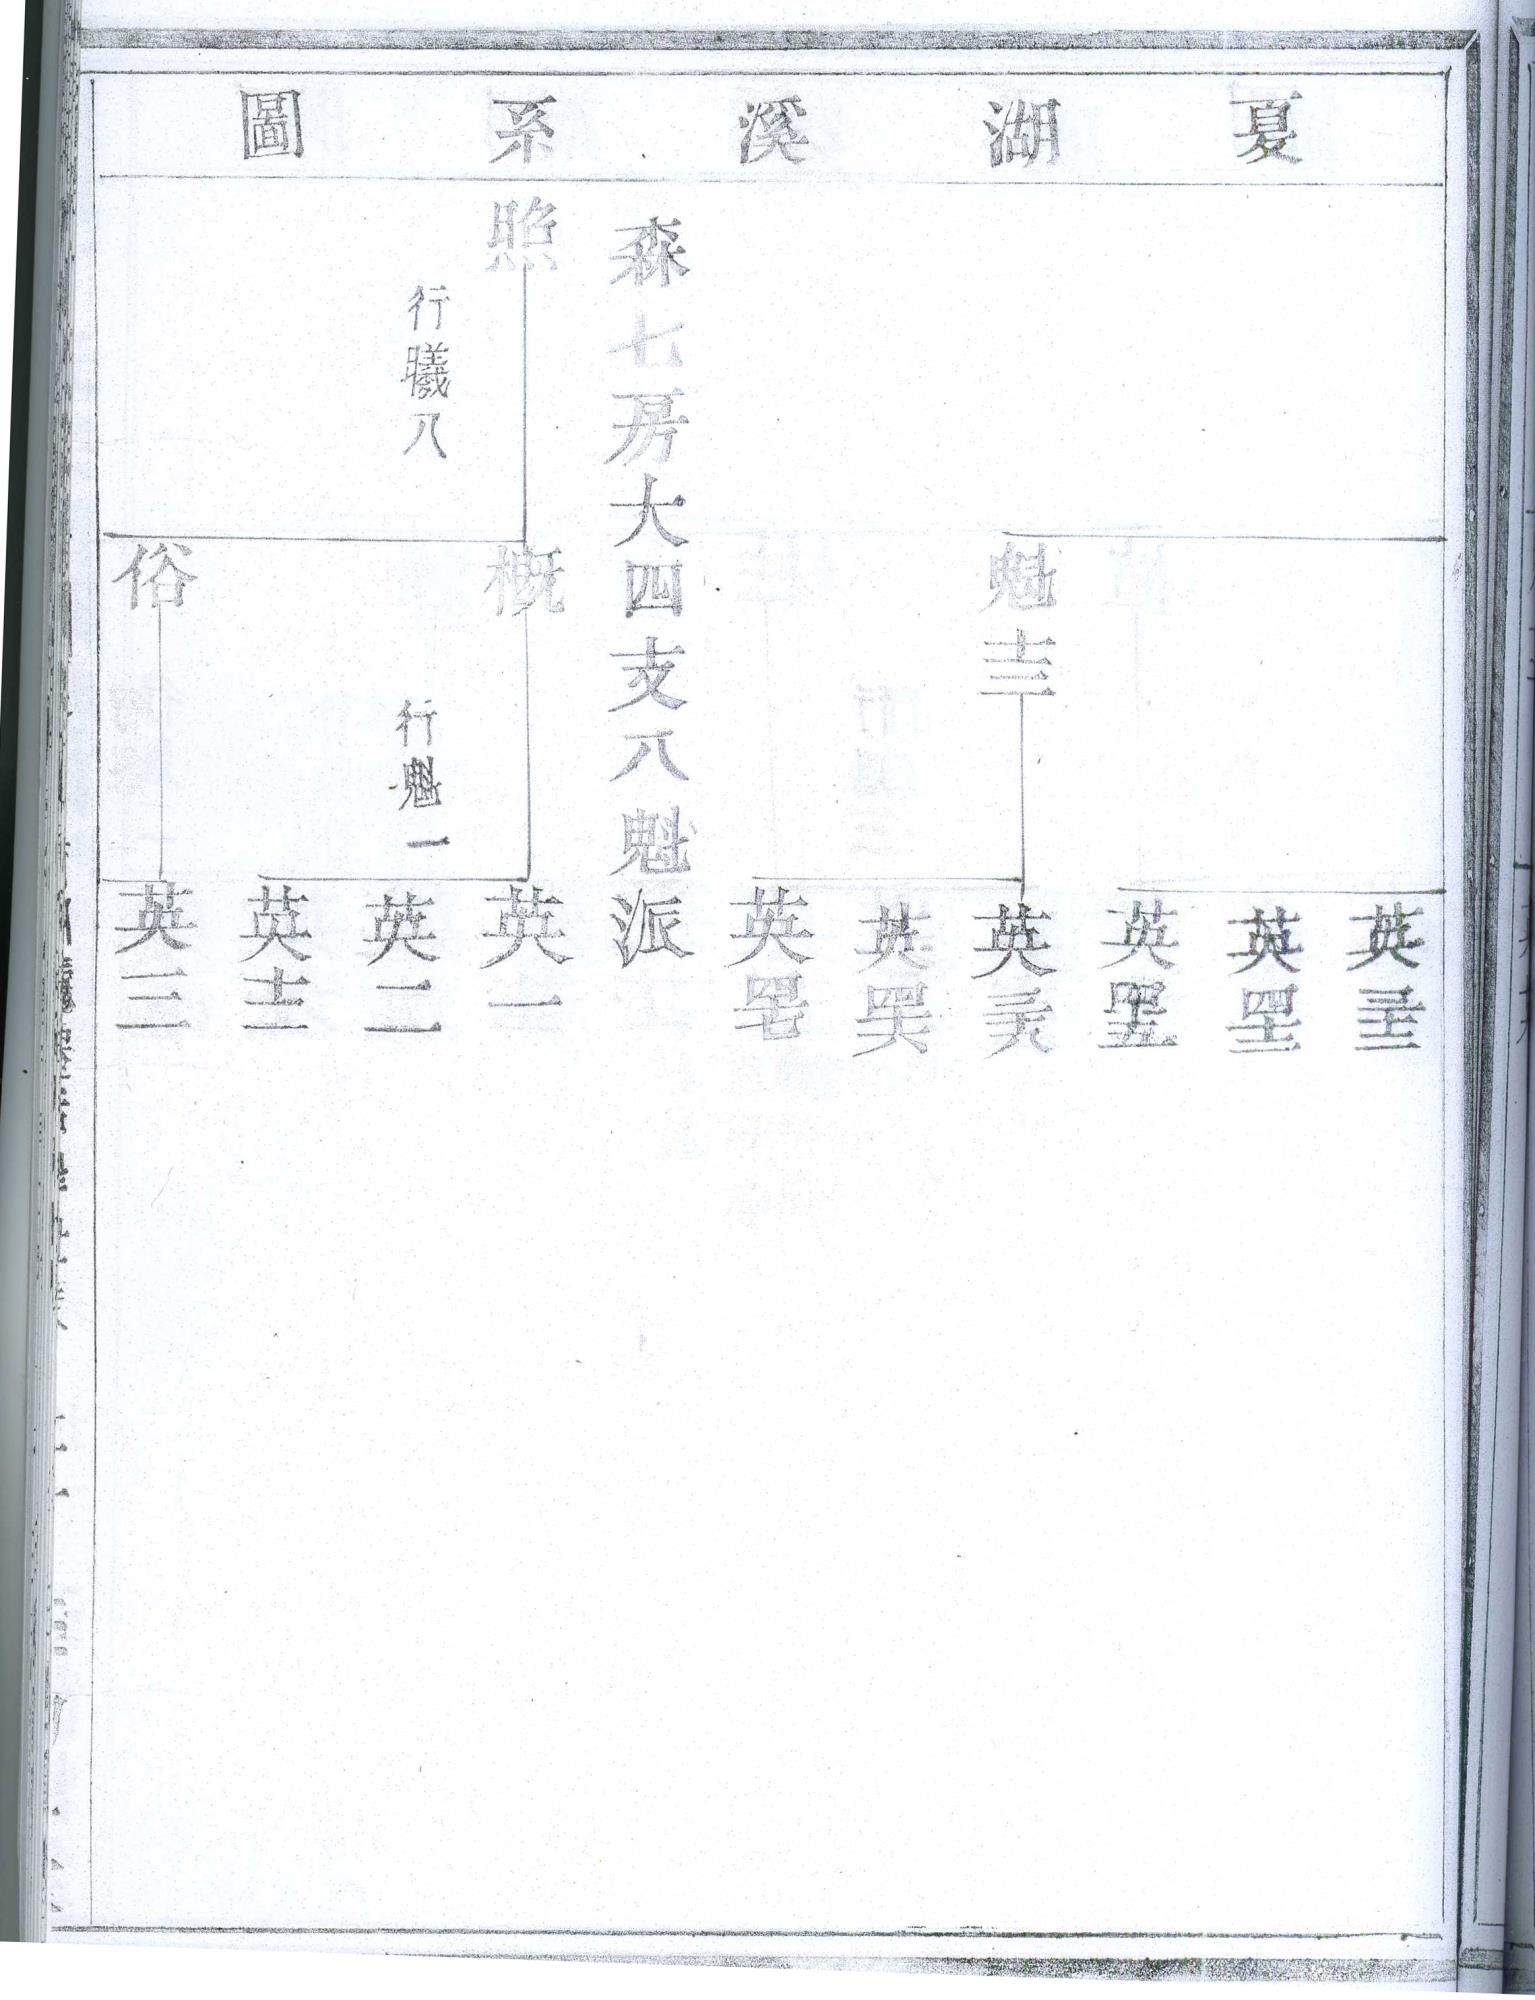 夏湖溪系圖
英
英
英四十五
魁十三
英三十六
英四十六
英四十七
森七房大四支八魁派
照
概
英一
行曦八
行魁一
英二
英十二
俗
英三